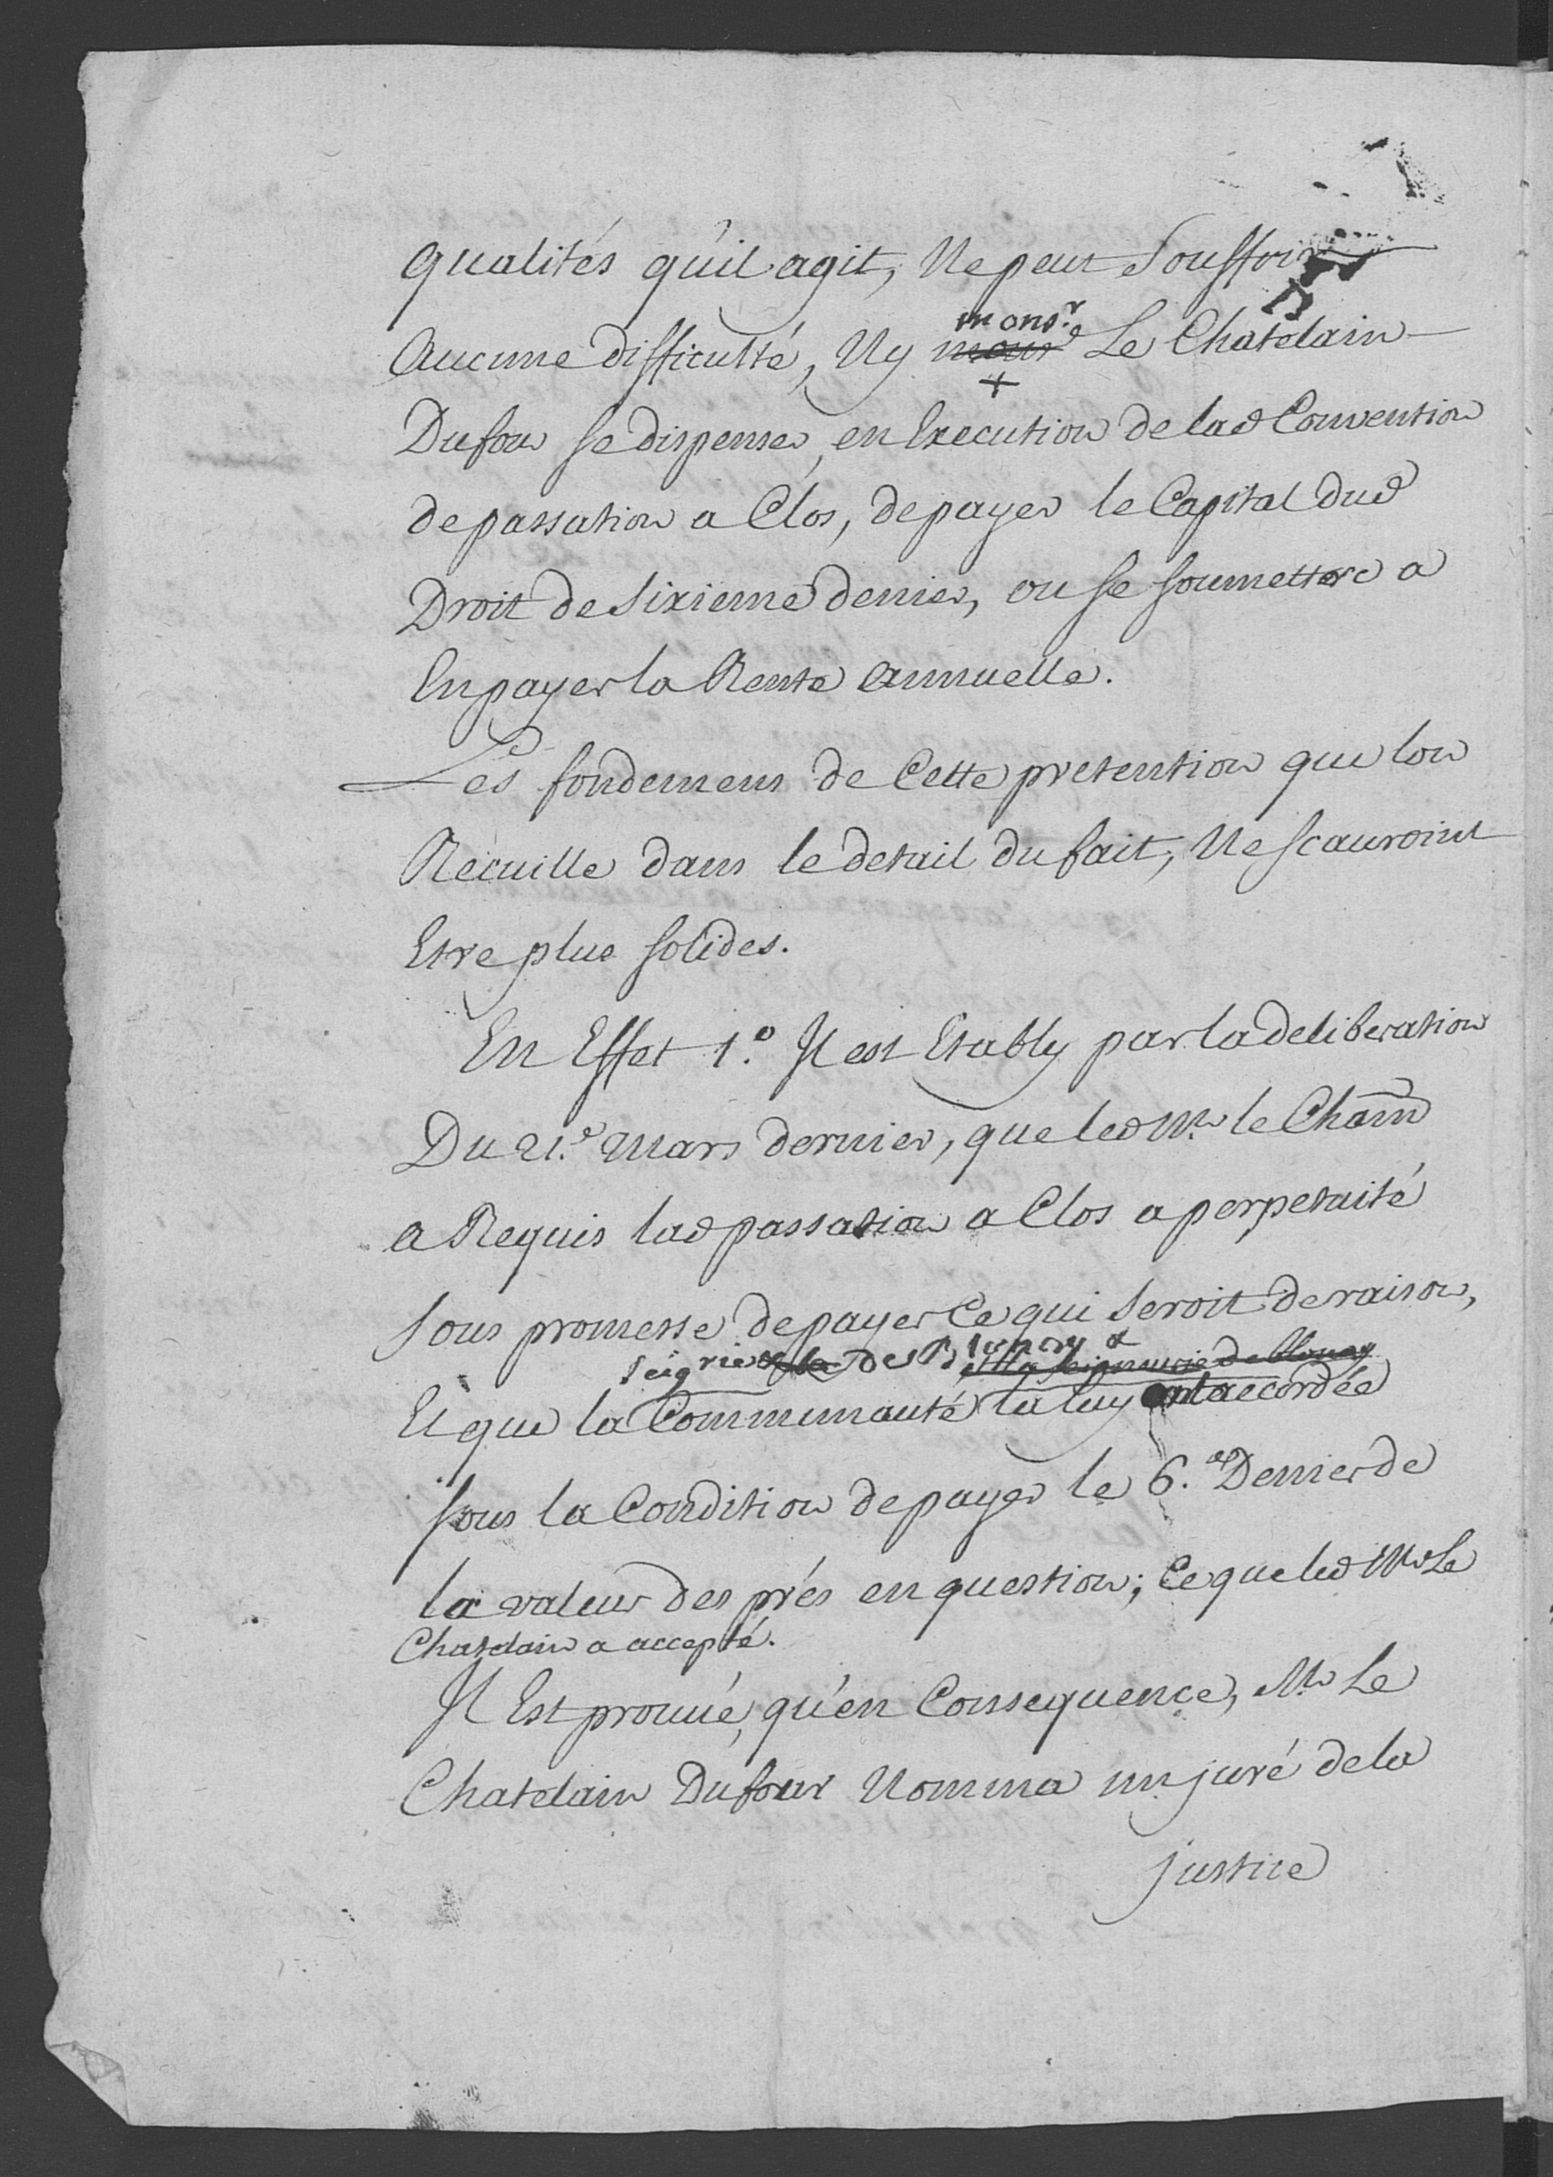 qualités qu'il agit, Ne peut Souffrir
Aucune difficulté, Ny monsr. Le Chatelain
Dufour se dispenser, en Execution de lad Convention
de passation a Clos, de payer le Capital dud
Droit de sixieme denier, ou se soumettre a
En payer la Rente annuelle.
Les fondemens de Cette pretention que lon
Recuille dans le detail du fait, Ne scauroint
Etre plus solides.
En Effet 1.o Il est Etably par la deliberation
Du 21.e Mars dernier, que led Mr le Cham
a Requis lad passation a Clos a perpetuité
sous promesse de payer Ce qui Seroit de raison,
seigrie & la de Blonay & et la Seigneurie de blonay
Et que la Communauté la luy ont accordée
sous la Condition de payer le 6.e Denier de
la valeur des prés en question; Ce que led Mr Le
Chatelain a accepté.
Il Est prouvé, qu'en Consequence, Mr Le
Chatelain Dufour Nomma un juré de la
justice